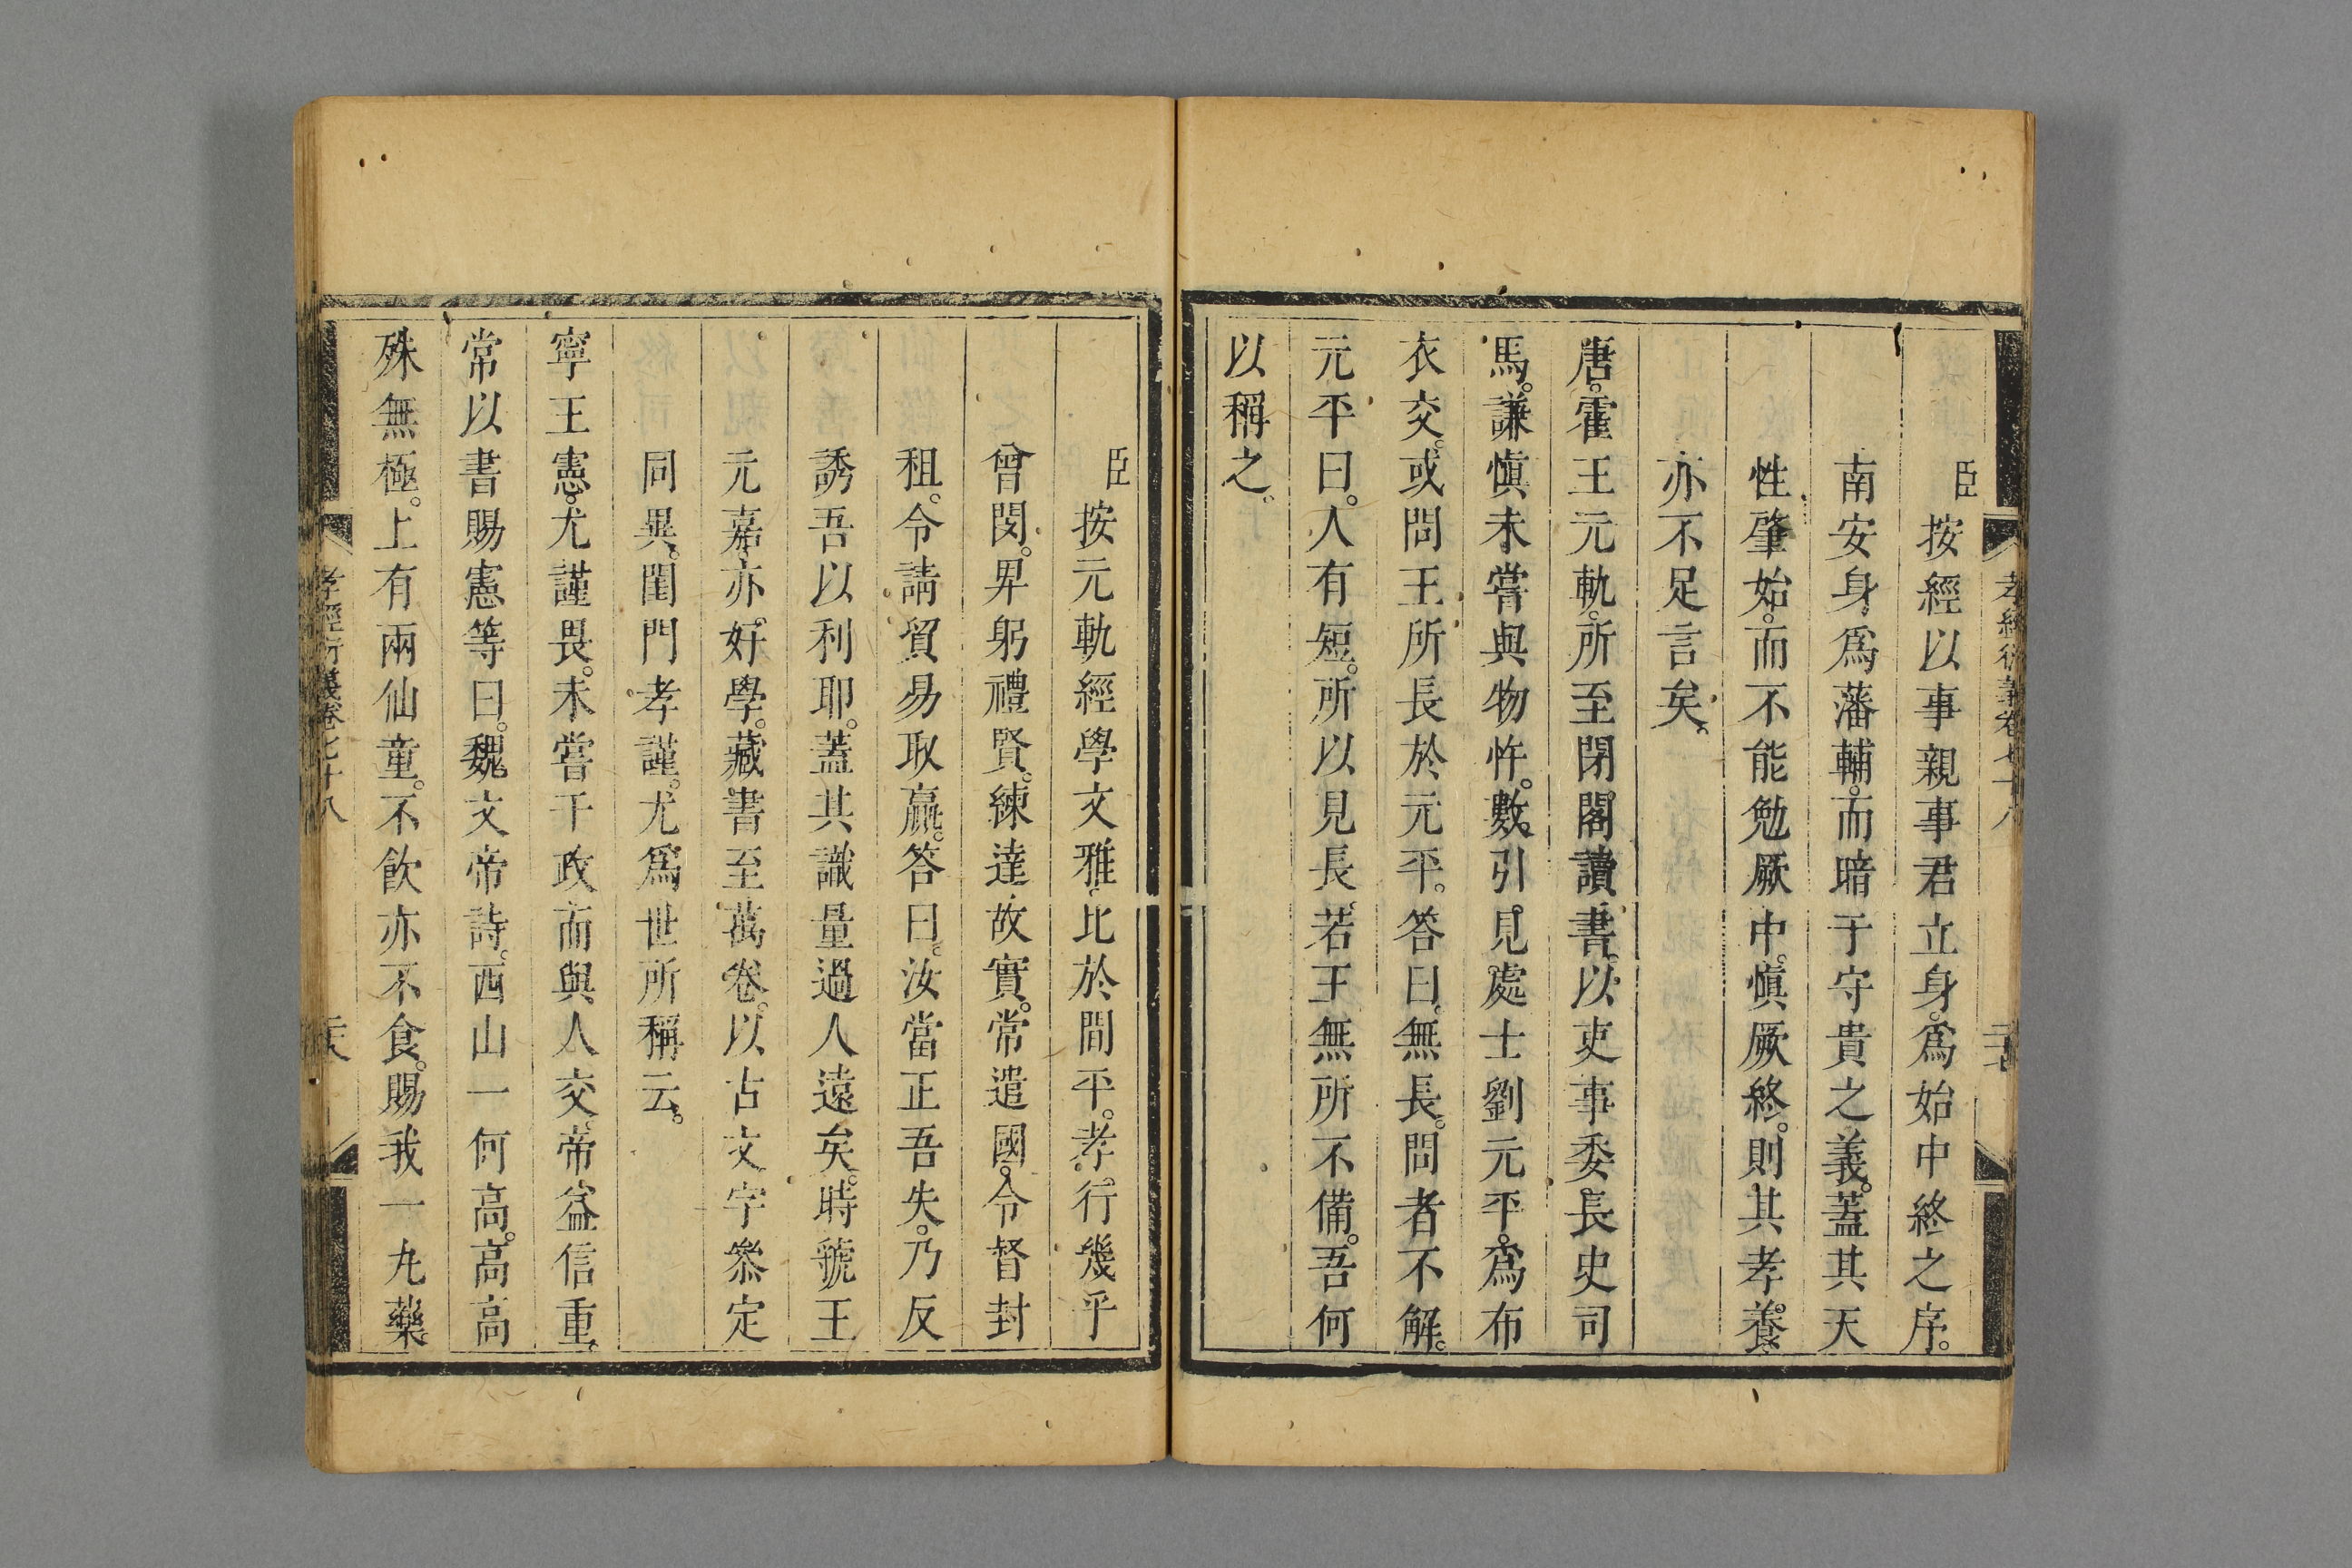 孝經衍義卷七十八
二十七
臣按經以事親事君立身。爲始中終之序。
南安身爲藩輔。而暗于守貴之義。蓋其天
性肇始。而不能勉厥中。愼厥終。則其孝養。
亦不足言矣。
唐。霍王元軌。所至閉閣讀書。以吏事委長史司
馬。謙愼未嘗與物忤。數引見處士劉元平。爲布
衣交。或問王所長於元平。答曰。無長。問者不解。
元平曰。人有短。所以見長。若王無所不備。吾何
以稱之。
臣按元軌經學文雅。比於間平。孝行幾乎
曾閔。畀躬禮賢。練達故實。常遣國令督封
租。令請貿易取贏。答曰。汝當正吾失。乃反
誘吾以利耶。蓋其識量過人遠矣。時虢王
元嘉亦好學。藏書至萬卷。以古文字叅定
同異。閨門孝謹。尤爲世所稱云。
寧王憲。尤謹畏。未嘗干政而與人交。帝益信重。
常以書賜憲等曰。魏文帝詩。西山一何高。高高
殊無極。上有兩仙童。不飮亦不食。賜我一丸藥
孝經衍義卷七十八
二十八